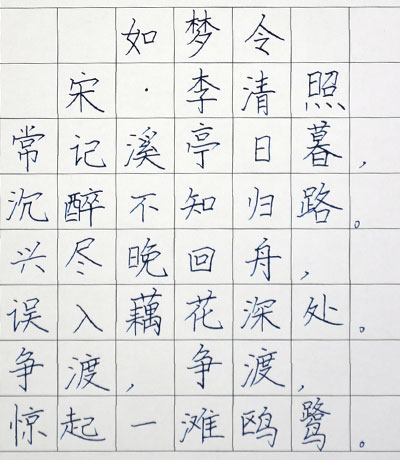 如梦令
宋·李清照
常记溪亭日暮，
沉醉不知归路。
兴尽晚回舟，
误入藕花深处。
争渡，争渡，
惊起一滩鸥鹭。